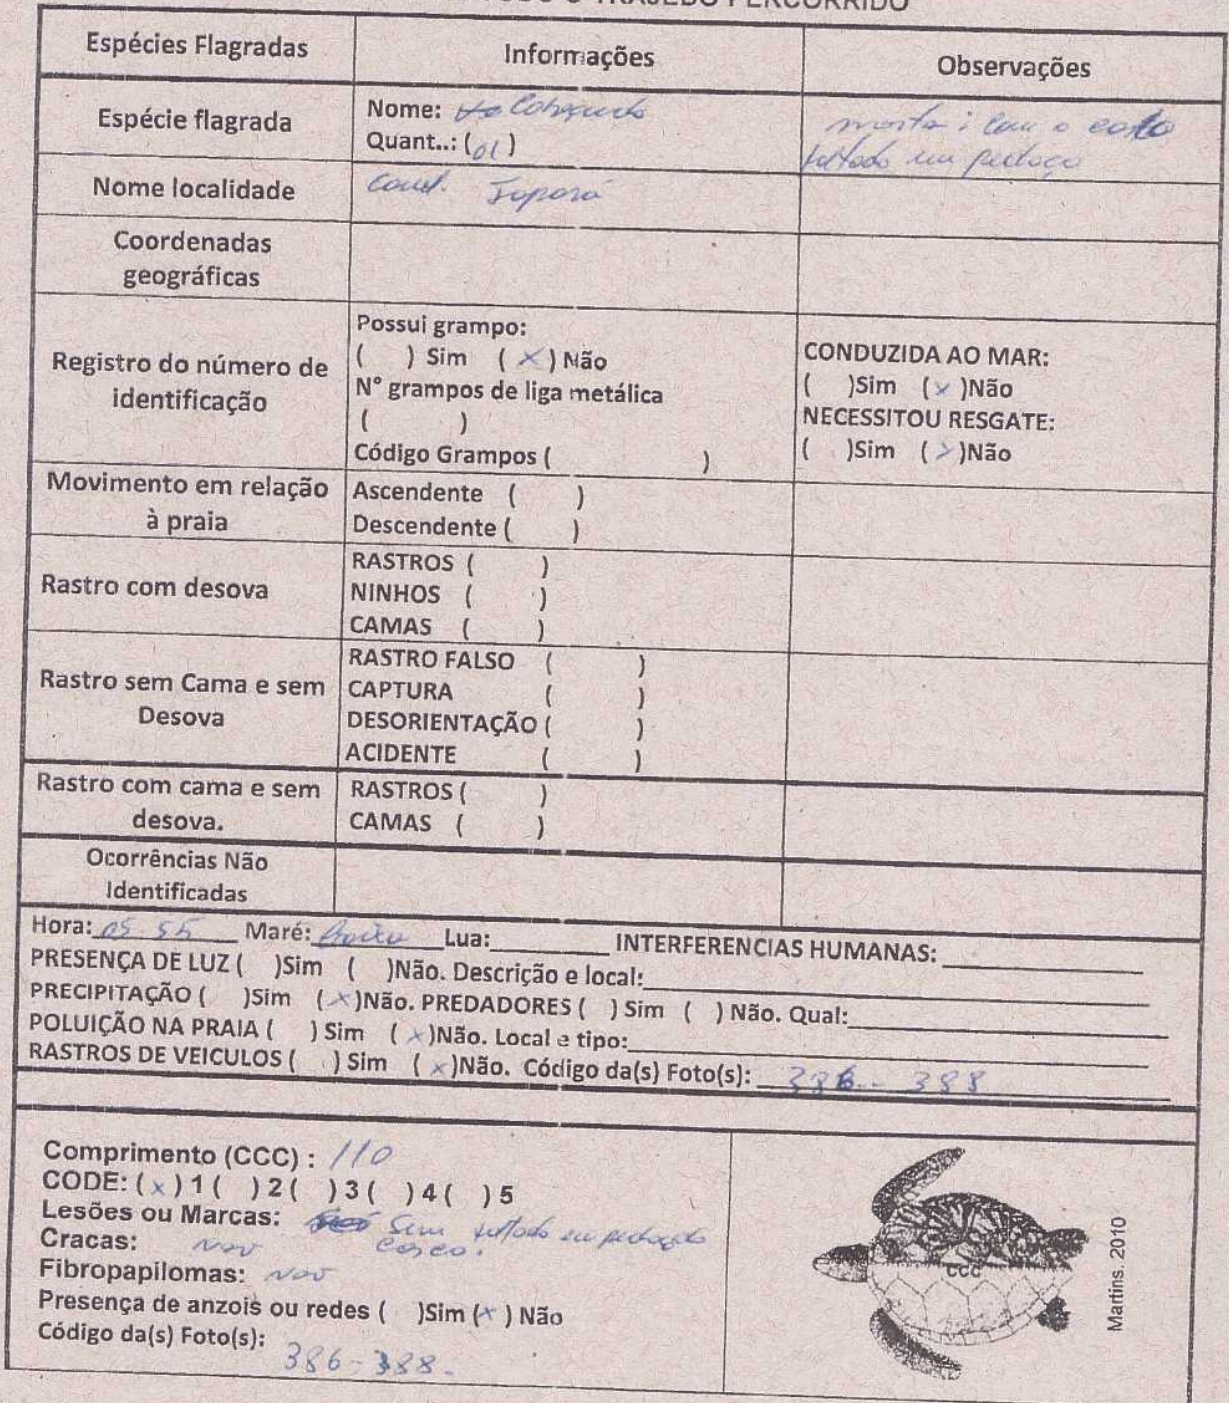 TODO O TRAJEDO PERCORRIDO
Espécies Flagradas Informações Observações
Espécie flagrada
Nome:
Quant..: (01)
morta : com o casco
faltado um pedaço
Nome localidade
Coordenadas
geográficas
Registro do número de
identificação
Possui grampo:
( ) Sim (x) Não
N° grampos de liga metálica
( )
Código Grampos ( )
CONDUZIDA AO MAR:
( )Sim (x)Não
NECESSITOU RESGATE:
( )Sim (x)Não
Movimento em relação
à praia
Ascendente ( )
Descendente ( )
Rastro com desova
RASTROS ( )
NINHOS ( )
CAMAS ( )
Rastro sem Cama e sem
Desova
RASTRO FALSO ( )
CAPTURA ( )
DESORIENTAÇÃO ( )
ACIDENTE ( )
Rastro com cama e sem
desova.
RASTROS ( )
CAMAS ( )
Ocorrências Não
Identificadas
Hora: 05.55 Maré: Baixa Lua: INTERFERENCIAS HUMANAS:
PRESENÇA DE LUZ ( )Sim ( )Não. Descrição e local:
PRECIPITAÇÃO ( )Sim (x)Não. PREDADORES ( ) Sim ( ) Não. Qual:
POLUIÇÃO NA PRAIA ( ) Sim (x)Não. Local e tipo:
RASTROS DE VEICULOS ( ) Sim (x)Não. Código da(s) Foto(s): 386 - 388
Comprimento (CCC) : 110
CODE: (x) 1 ( ) 2 ( ) 3 ( ) 4 ( ) 5
Lesões ou Marcas: Sim faltado um pedaço do
casco.
Cracas: não
Fibropapilomas: não
Presença de anzois ou redes ( )Sim (x) Não
Código da(s) Foto(s):
386-388-
CCC
Martins. 2010